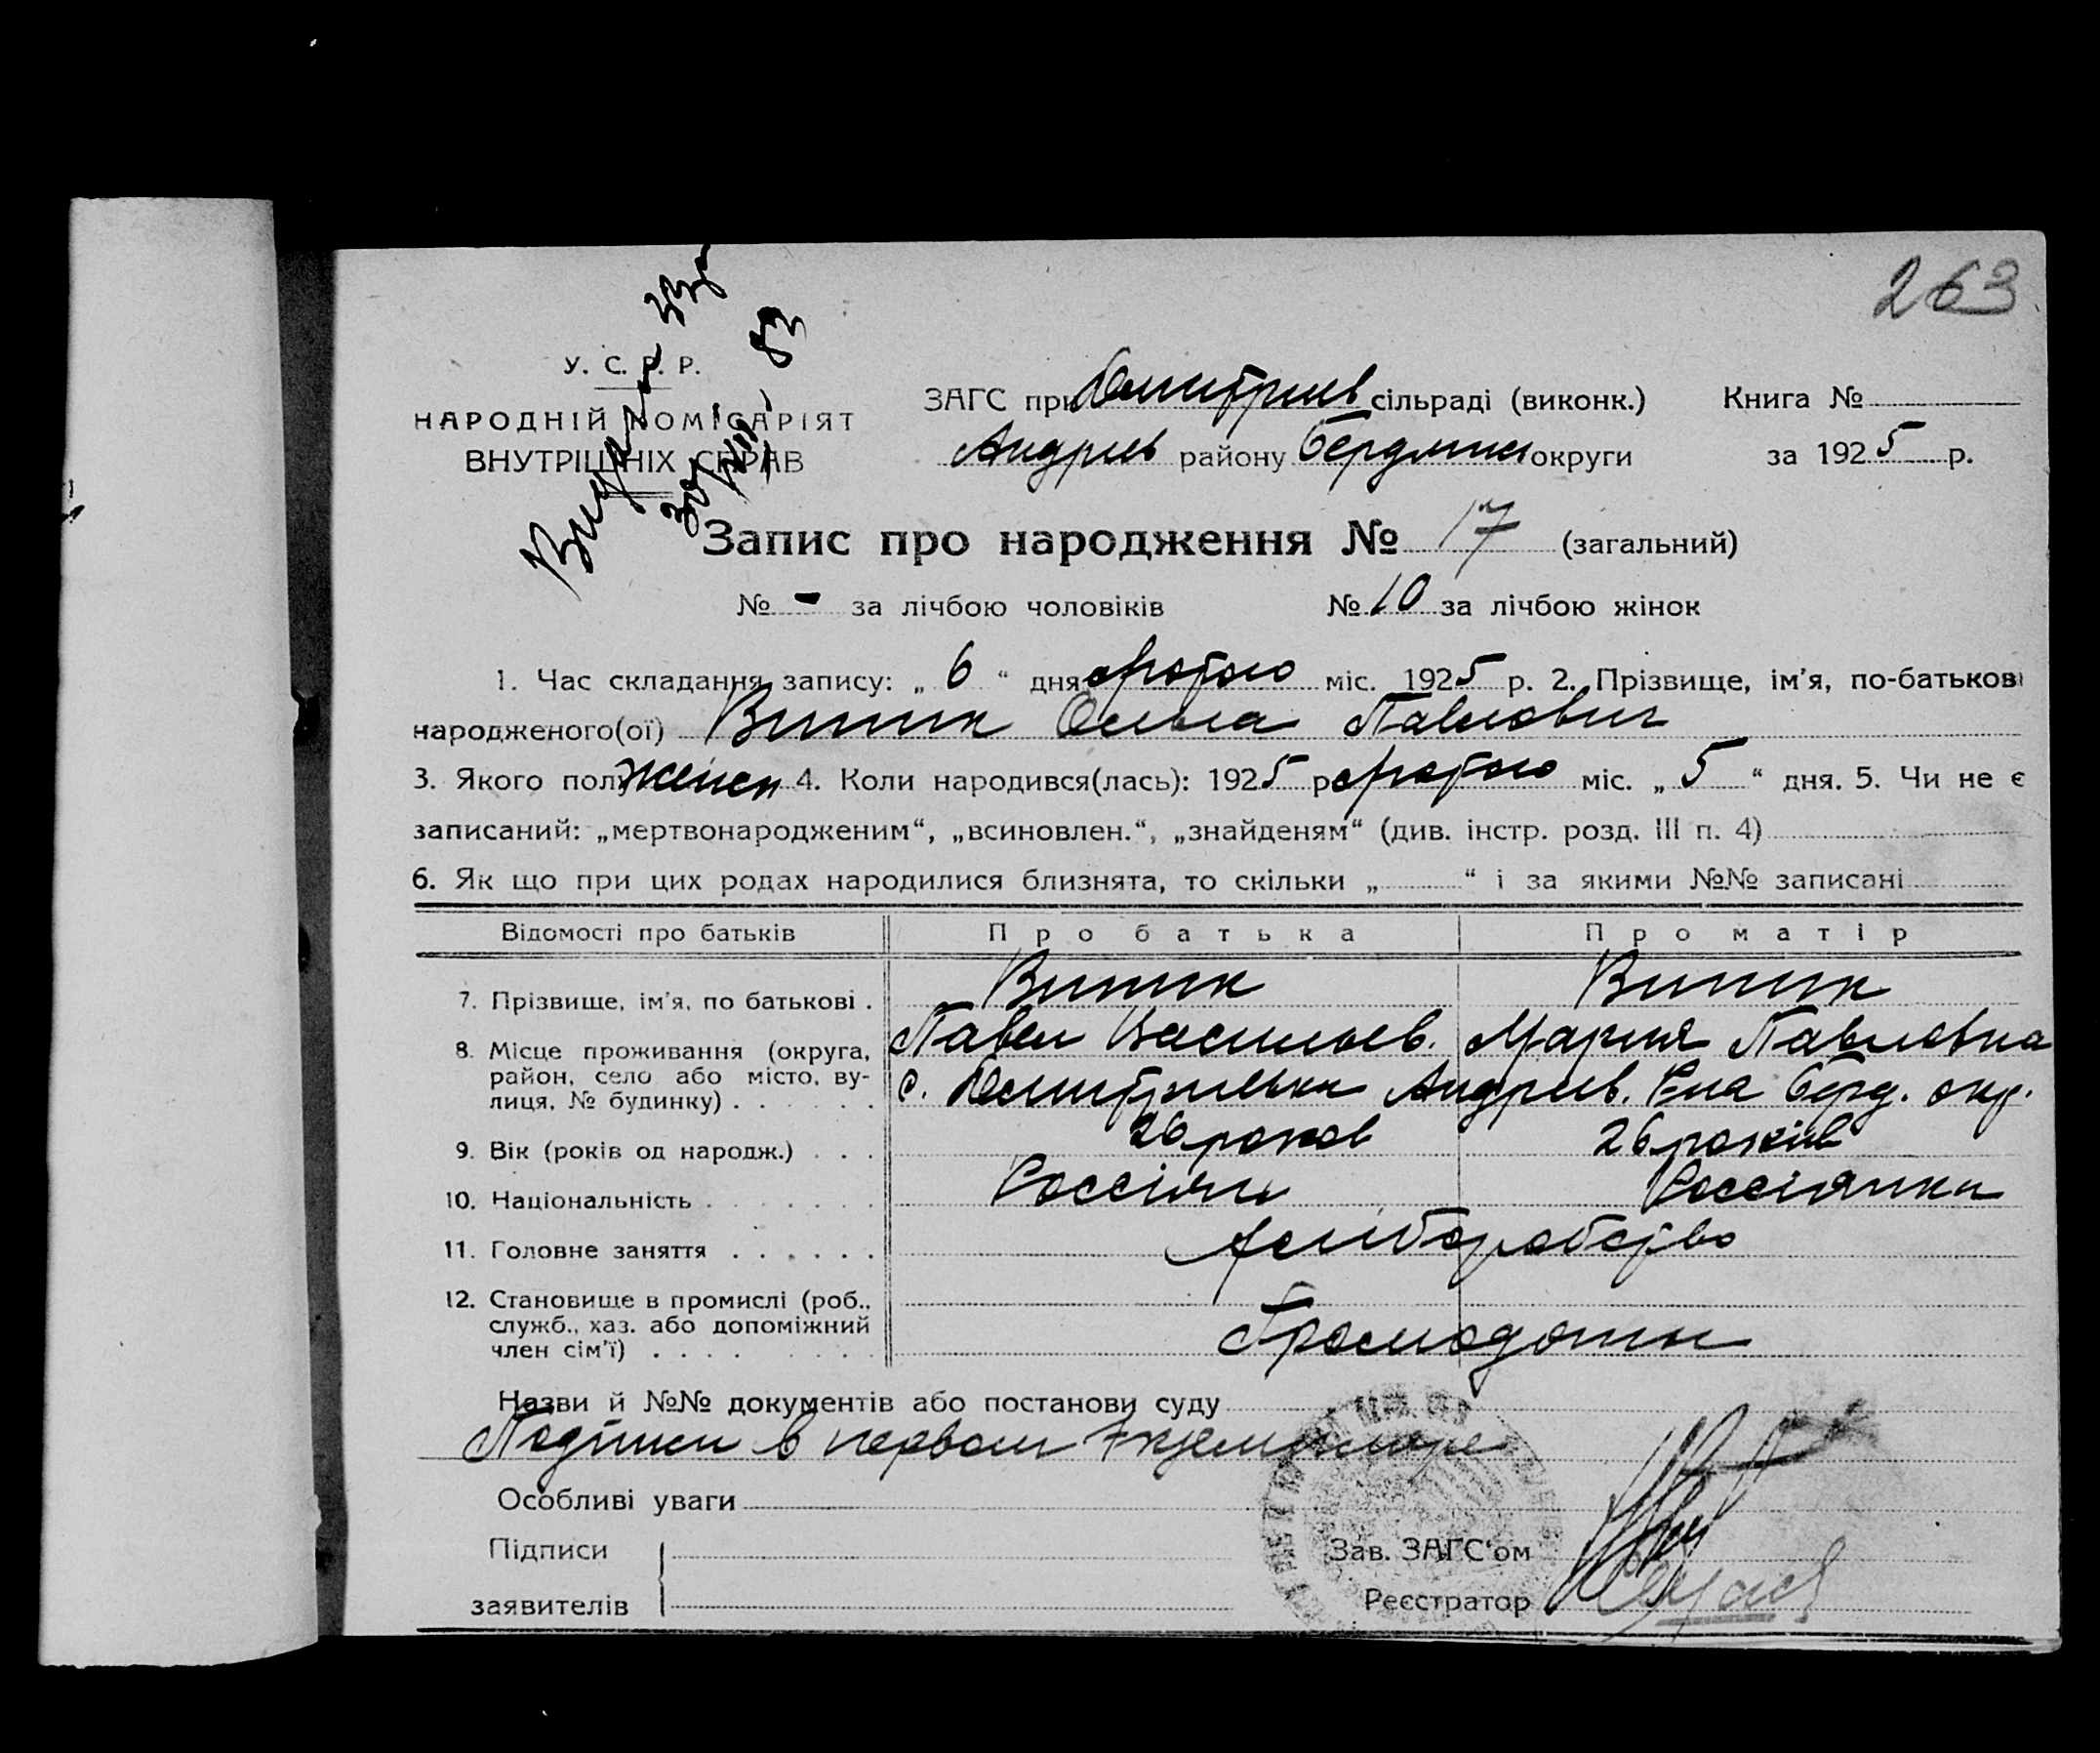 263
У. С. Р. Р.
НАРОДНІЙ КОМІСАРІЯТ
ВНУТРІШНІХ СПРАВ
ЗАГС при Дмитриев сільраді (виконк.) Книга №
Андриев району Бердянск округи за 1925 р.
Запис про народження № 17 (загальний)
№ - за лічбою чоловіків № 10 за лічбою жінок
1. Час складання запису: „ 6 “ дня лютого міс. 1925 р. 2. Прізвище, ім'я, по-батькові
народженого(ої) Винник Ольга Павлович
3. Якого полу женск 4. Коли народився(лась): 1925 р лютого міс. „ 5 “ дня. 5. Чи не є
записаний: „мертвонародженим“, „всиновлен.“, „знайденям“ (див. інстр. розд. III п. 4)
6. Як що при цих родах народилися близнята, то скільки „ “ і за якими №№ записані
Відомості про батьків Про батька Про матір
7. Прізвище, ім'я, по батькові . Винник Винник
Павел Васильев. Мария Павловна
8. Місце проживання (округа,
район, село або місто, ву-
лиця, № будинку) . . . . . . с. Дмитриевка Андриев. Рна Берд. окр.
9. Вік (років од народж.) . . . 26 роков 26 років
10. Національність . . . . . . . Россіян Россіянка
11. Головне заняття . . . . . . Хліборобство
12. Становище в промислі (роб.,
служб., хаз. або допоміжний
член сім'ї) . . . . . . . . .
Назви й №№ документів або постанови суду
Подписи в первом экземпляре
Особливі уваги
Підписи
заявителів
Зав. ЗАГС'ом
Реєстратор